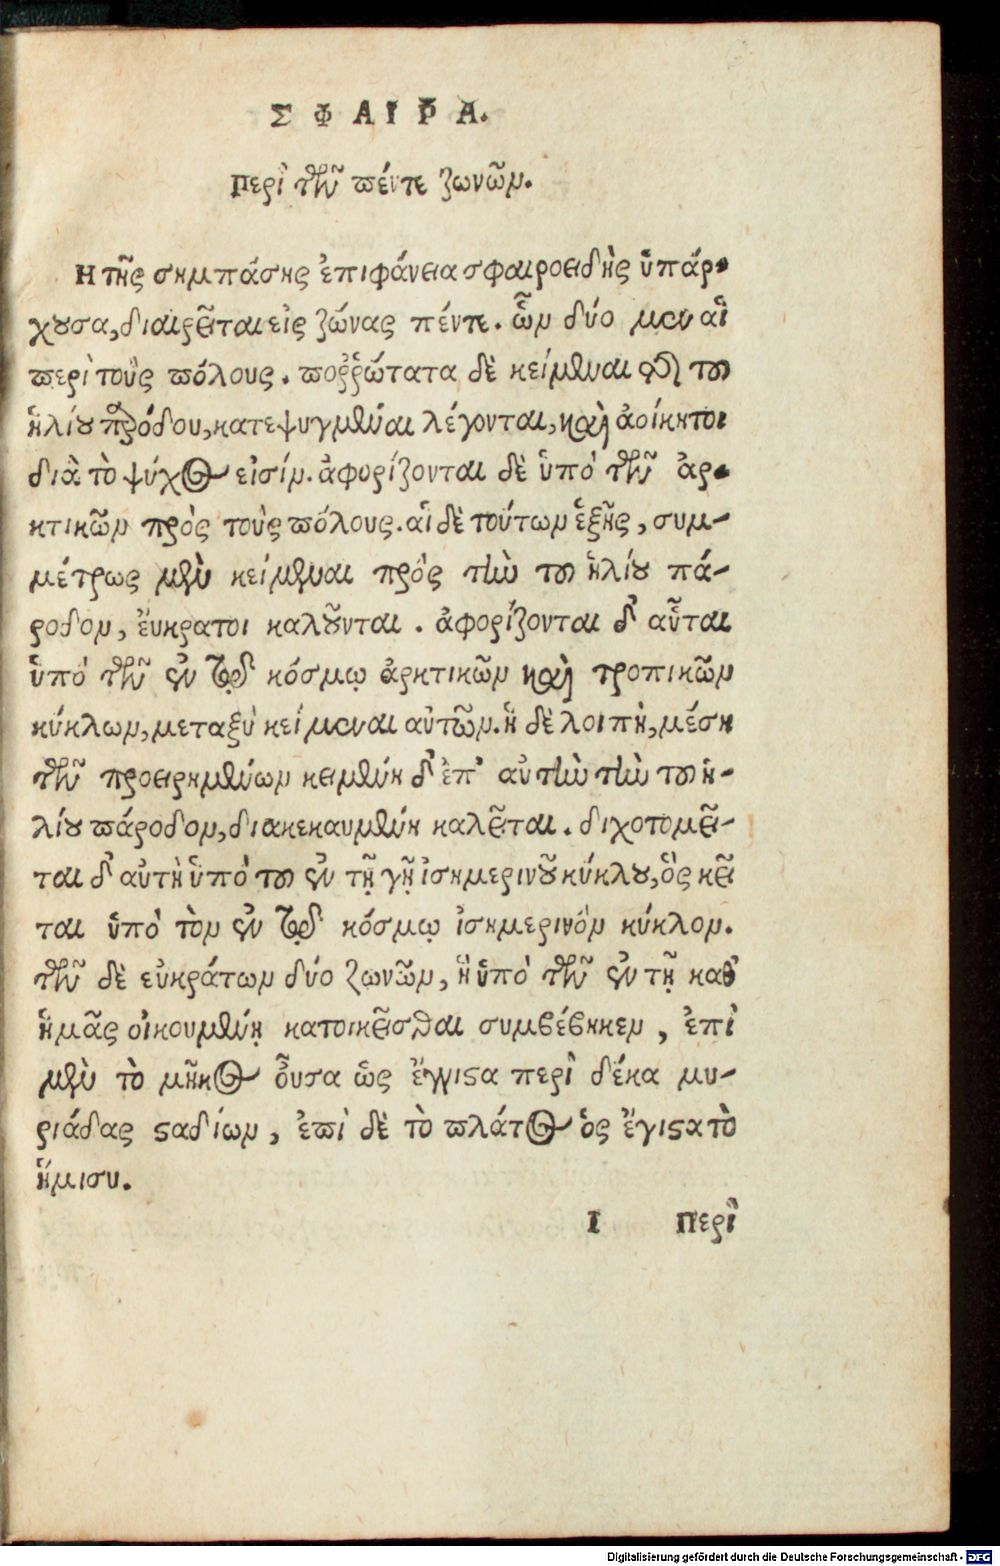 ΣΦΑΙΡΑ.
Περὶ τῶν πέντε ζωνῶν.
Η τῆς σημπάσης ἐπιφάνεια σφαιροειδὴς ὑπάρ-
χουσα, διαιρεῖται εἰς ζώνας πέντε. ὧν δύο μεν αἱ
περὶ τοὺς πόλους. ποῤῥώτατα δὲ κείμεναι τοῦ
ἡλίου παρόδου, κατεψυγμέναι λέγονται, καὶ ἀοίκητοι
διὰ τὸ ψύχος εἰσίν. ἀφορίζονται δὲ ὑπὸ τῶν ἀρ-
κτικῶν πρὸς τοὺς πόλους. αἱ δὲ τούτων ἑξῆς, συμ-
μέτρως μὲν κείμεναι πρὸς τὴν του ἡλίου πά-
ροδον, ἔυκρατοι καλοῦνται. ἀφορίζονται δ' αὗται
ὑπὸ τῶν ἐν τῷ κόσμῳ ἀρκτικῶν καὶ τροπικῶν
κύκλων, μεταξὺ κείμεναι αὐτῶν. ἡ δὲ λοιπὴ, μέση
τῶν προειρημένων κειμένη δ' ἐπ' αὐτὴν τὴν του ἡ-
λίου πάροδον, διακεκαυμένη καλεῖται. διχοτομεῖ-
ται δ' αὐτὴ ὑπὸ του ἐν τῇ γῇ ἰσημερινοῦ κύκλου, ὃς κεῖ
ται ὑπὸ τὸν ἐν τῷ κόσμῳ ἰσημερινὸν κύκλον.
τῶν δὲ εὐκράτων δύο ζωνῶν, ἣ ὑπὸ τῶν ἐν τῇ καθ'
ἡμᾶς οἰκουμένῃ κατοικεῖσθαι συμβέβηκεν, ἐπὶ
μὲν τὸ μῆκος οὖσα ὡς ἔγγιστα περὶ δέκα μυ-
ριάδας σταδίων, ἐπὶ δὲ τὸ πλάτος ὁς ἔγιστα τὸ
ἥμισυ.
I Περὶ
Digitalisierung gefördert durch die Deutsche Forschungsgemeinschaft - DFG